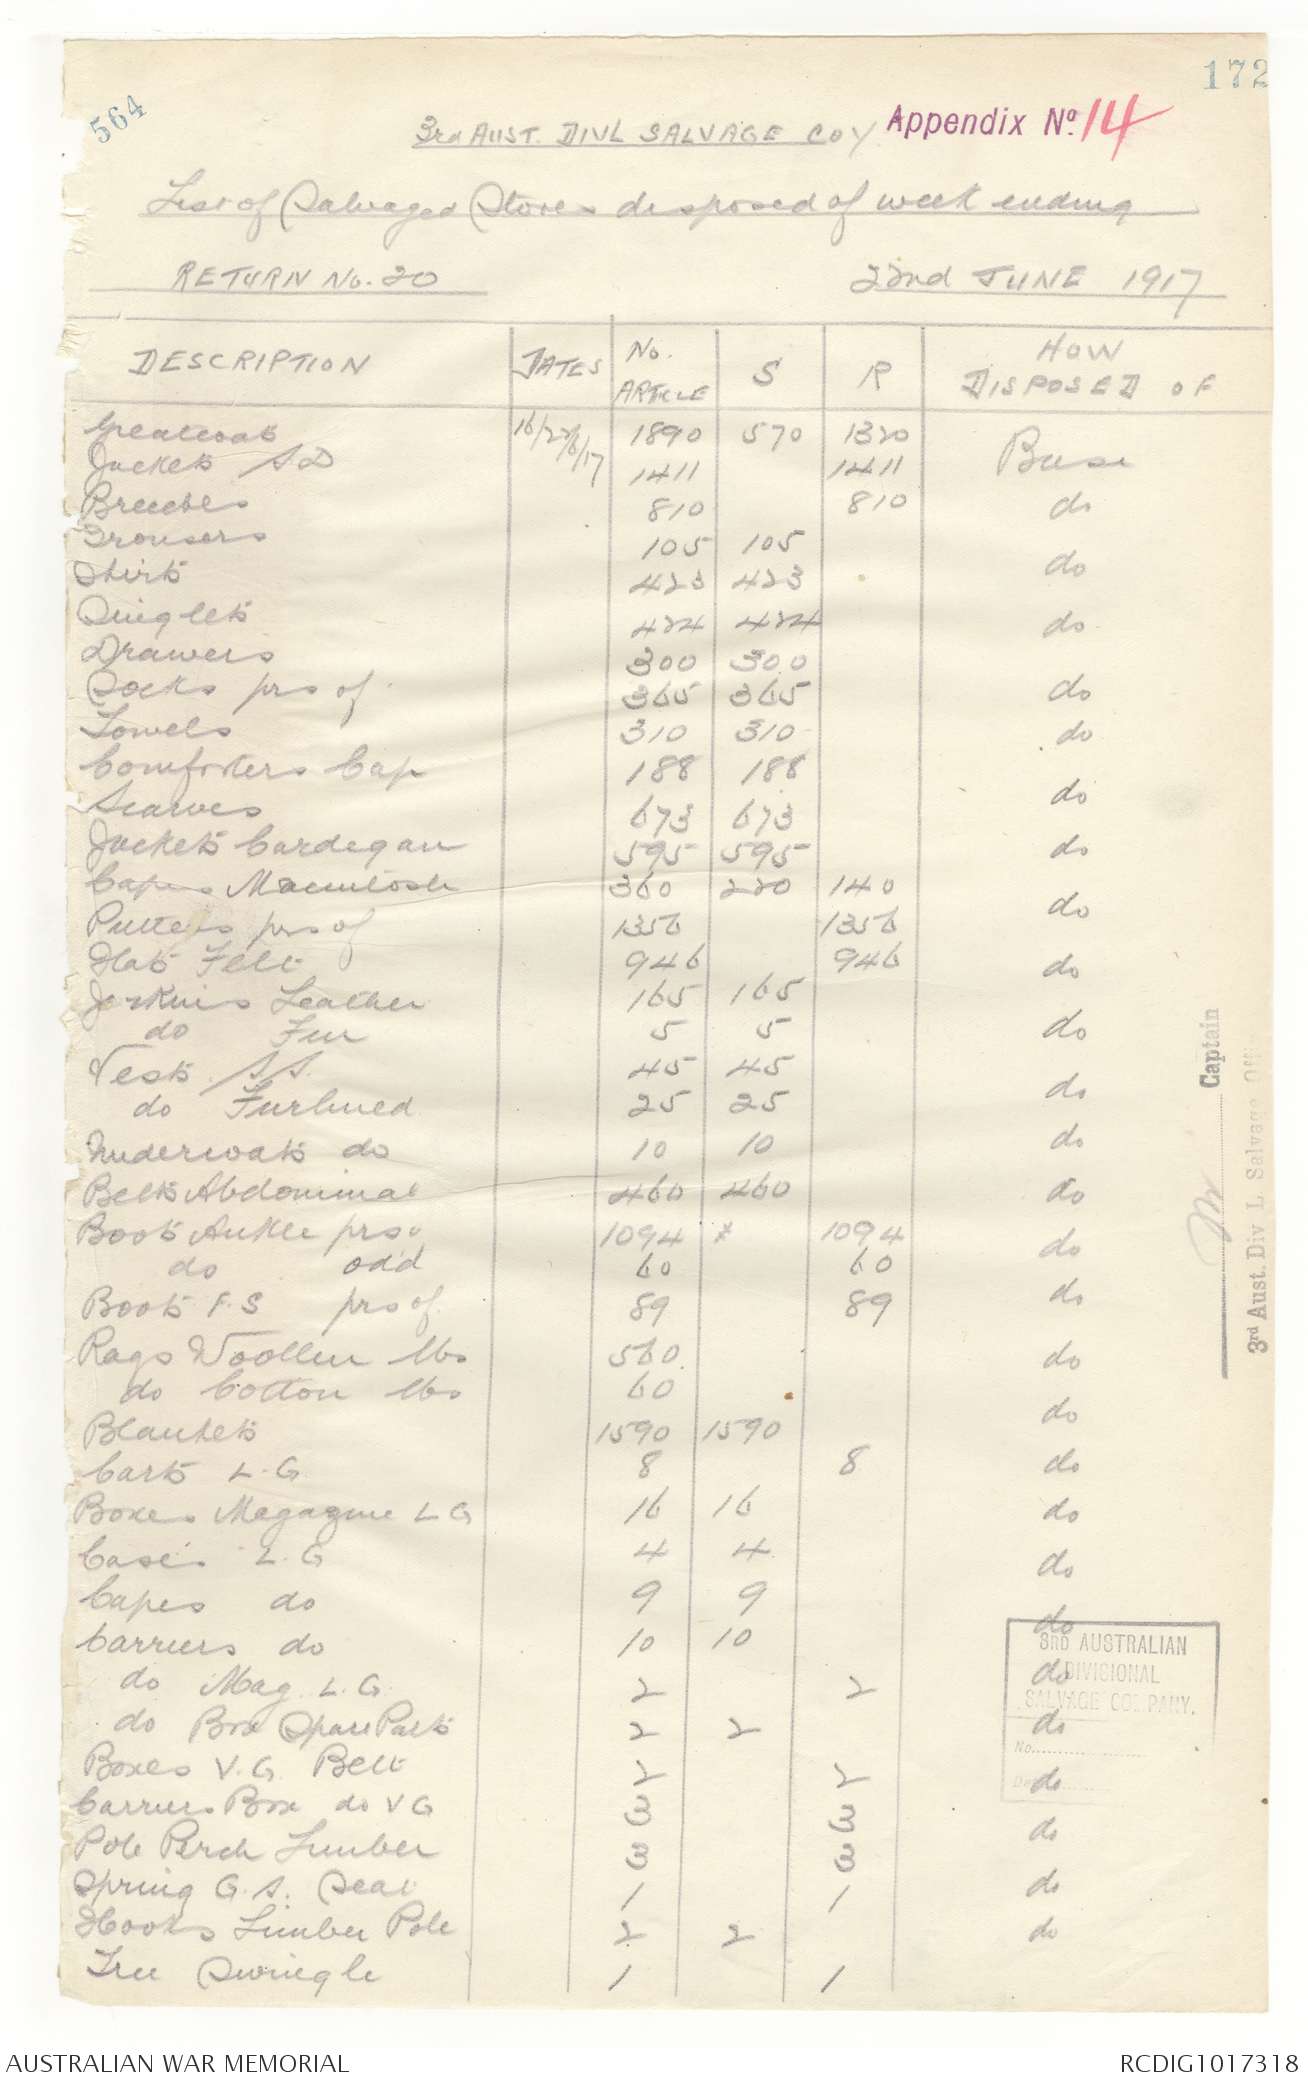 172
564
3rd AUST. DIVL SALVAGE COY Appendix No. 14
List of Salvaged Stores disposed of week ending
RETURN No. 20 22nd JUNE 1917
DESCRIPTION DATES No. ARTICLE S R HOW DISPOSED OF
Greatcoats 16/22/6/17 1890 570 1320 Base
Jackets S D 1411 1411
Breeches 810 810 do
Trousers 105 105
Shirts 423 423 do
Singlets 424 424 do
Drawers 300 300
Socks prs of 365 365 do
Towels 310 310 do
Comforters Cap 188 188
Scarves 673 673 do
Jackets Cardegan 595 595 do
Capes Macintosh 360 220 140
Puttees prs of 1356 1356 do
Hats Felt 946 946 do
Jerkins Leather 165 165
do Fur 5 5 do
Vests S.S. 45 45
do Furlined 25 25 do
Undercoats do 10 10 do
Belts Abdominal 460 460 do
Boots Ankle prs. 1094 * 1094 do
do odd 60 60
Boots F.S prs of 89 89 do
Rags Woollen lbs 560 do
do Cotton lbs 60
Blankets 1590 1590 do
Carts L.G 8 8 do
Boxes Magazine L G 16 16 do
Cases L.G 4 4 do
Capes do 9 9 do
Carriers do 10 10
do Mag L.G 2 2 do
do Box Spare Parts 2 2 do
Boxes V.G. Belt 2 2 do
Carriers Box do V G 3 3
Pole Perch Limber 3 3 do
Spring G.S. Seat 1 1 do
Hooks Limber Pole 2 2 do
Tree Swingle 1 1
Captain
3rd Aust. Div L Salvage Offi
3RD AUSTRALIAN
DIVISIONAL
SALVAGE COMPANY.
No.
AUSTRALIAN WAR MEMORIAL RCDIG1017318